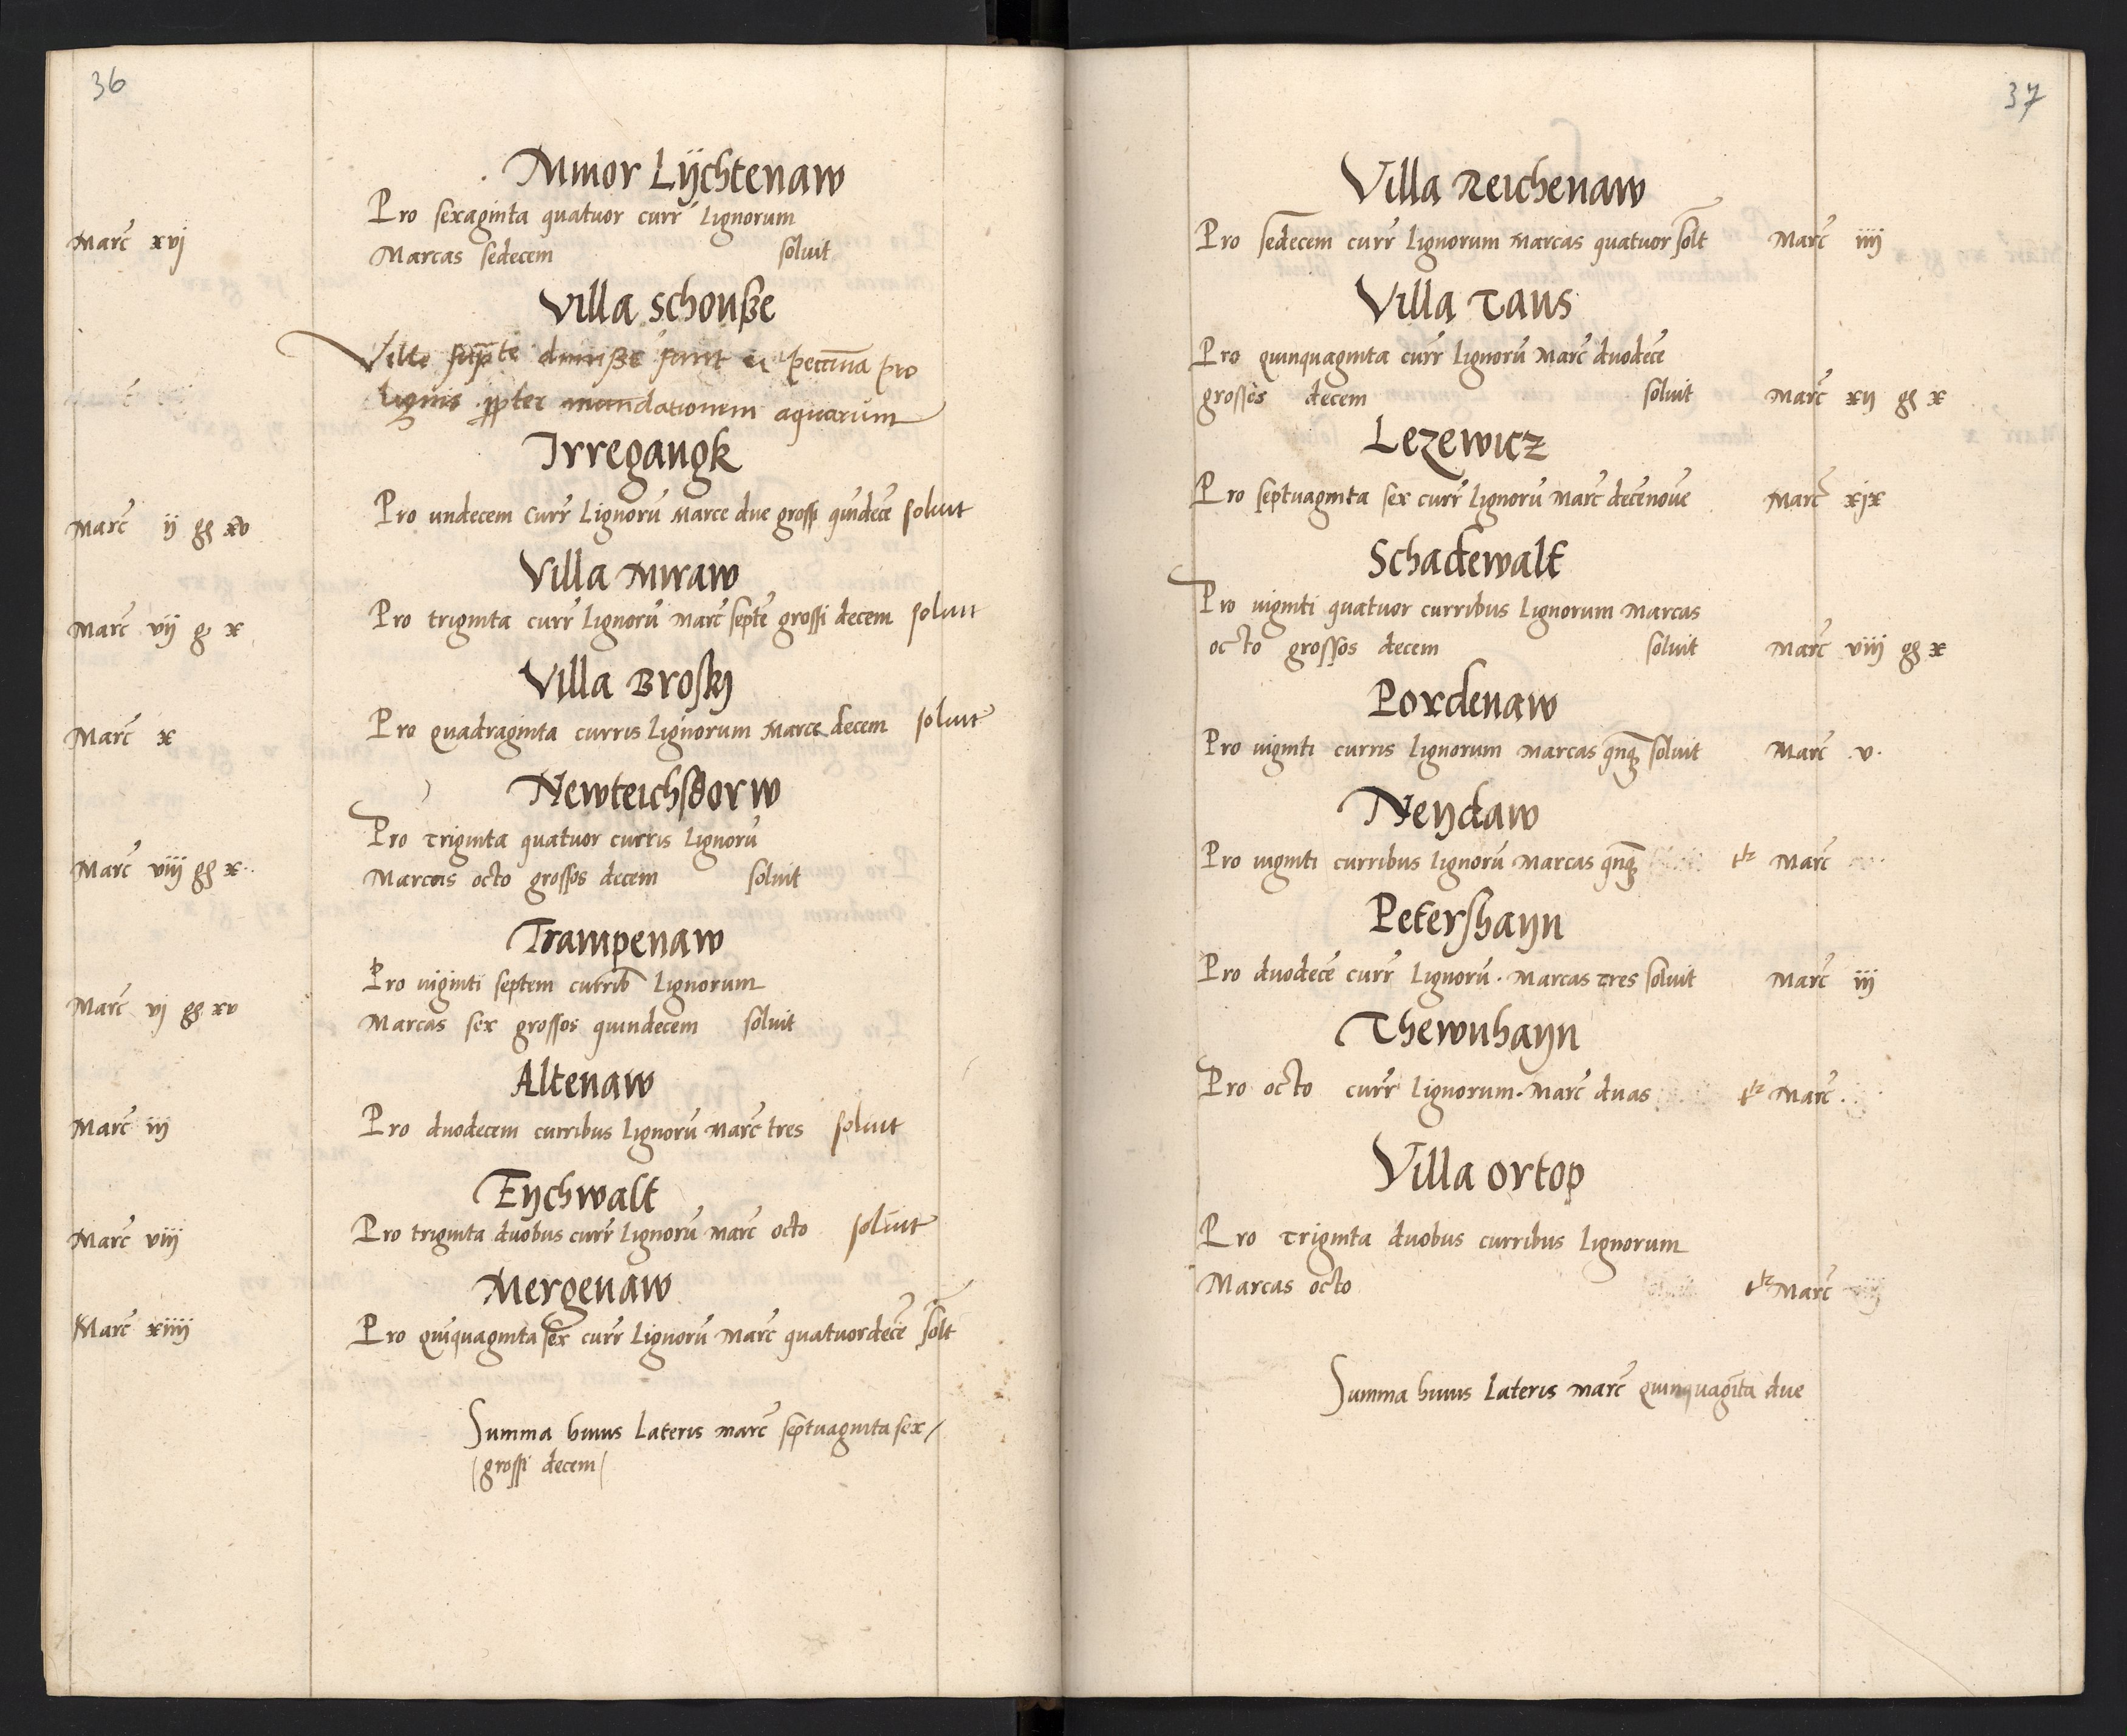 36
Minor Lÿchtenaw
Pro sexaginta quatuor curr̄ Lignorum
Marc̄ xvj Marcas sedecem soluit
Villa Schonße
Ville sup̄te dimiße sunt ei peccūia pro
lignis ꝓpter inundationem aquarum
Irregangk
Marc̄ ij gg xv Pro undecem Curr̄ Lignorū Marce due grossi qūidecē soluit
Villa Miraw
Marc̄ vij g x Pro triginta curr̄ Lignorū Marc̄ septē grossi decem soluit
Villa Broskj
Marc̄ x Pro quadraginta curris Lignorum Marce decem soluit
Newteichsdorw
Pro Triginta quatuor curris Lignorū
Marc̄ viij gg x Marcas octo grossos decem soluit
Trampenaw
Pro viginti septem currib̄ Lignorum
Marc̄ vj gg xv Marcas sex grossos quindecem soluit
Altenaw
Marc̄ iij Pro duodecem curribus Lignorū Marc̄ tres soluit
Eÿchwalt
Marc̄ viij Pro triginta duobus curr̄ Lignorū Marc̄ octo soluit
Mergenaw
Marc̄ xiiij Pro quīquaginta sex curr̄ Lignorū Marc̄ quatuordecē solt̄
Summa huius Lateris marc̄ septuaginta sex /
/ grossi decem /
37
Villa Reichenaw
Pro sedecem curr̄ lignorum Marcas quatuor solt̄ Marc̄ iiij
Villa Taus
Pro quinquaginta curr̄ lignorū Marc̄ duodecē
grossos decem soluit Marc̄ xij gg x
Lezewicz
Pro septuaginta sex curr̄ lignorū Marc̄ decēnouē Marc̄ xjx
Schadewalt
Pro viginti quatuor curribus Lignorum Marcas
octo grossos decem soluit Marc̄ viij gg x
Pordenaw
Pro viginti curris lignorum Marcas qnq̄ soluit Marc̄ v
Neÿdaw
Pro viginti curribus lignorū Marcas qnq̄ tꝫ Marc̄
Petershaÿn
Pro duodecē curr̄ Lignorū. Marcas Tres soluit Marc̄ iij
Thewnhaÿn
Pro octo curr̄ lignorum. Marc̄ duas tꝫ Marc̄
Villa Ortop
Pro Triginta duobus curribus Lignorum
Marcas octo tꝫ Marc̄ viij
Summa huius Lateris Marc̄ quinquagīta due